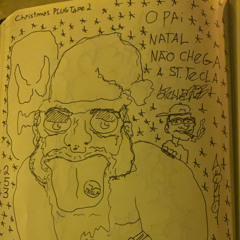 Christmas PLUGTape 2
O PAI
NATAL
NÃO CHEGA
A ST.TECLA